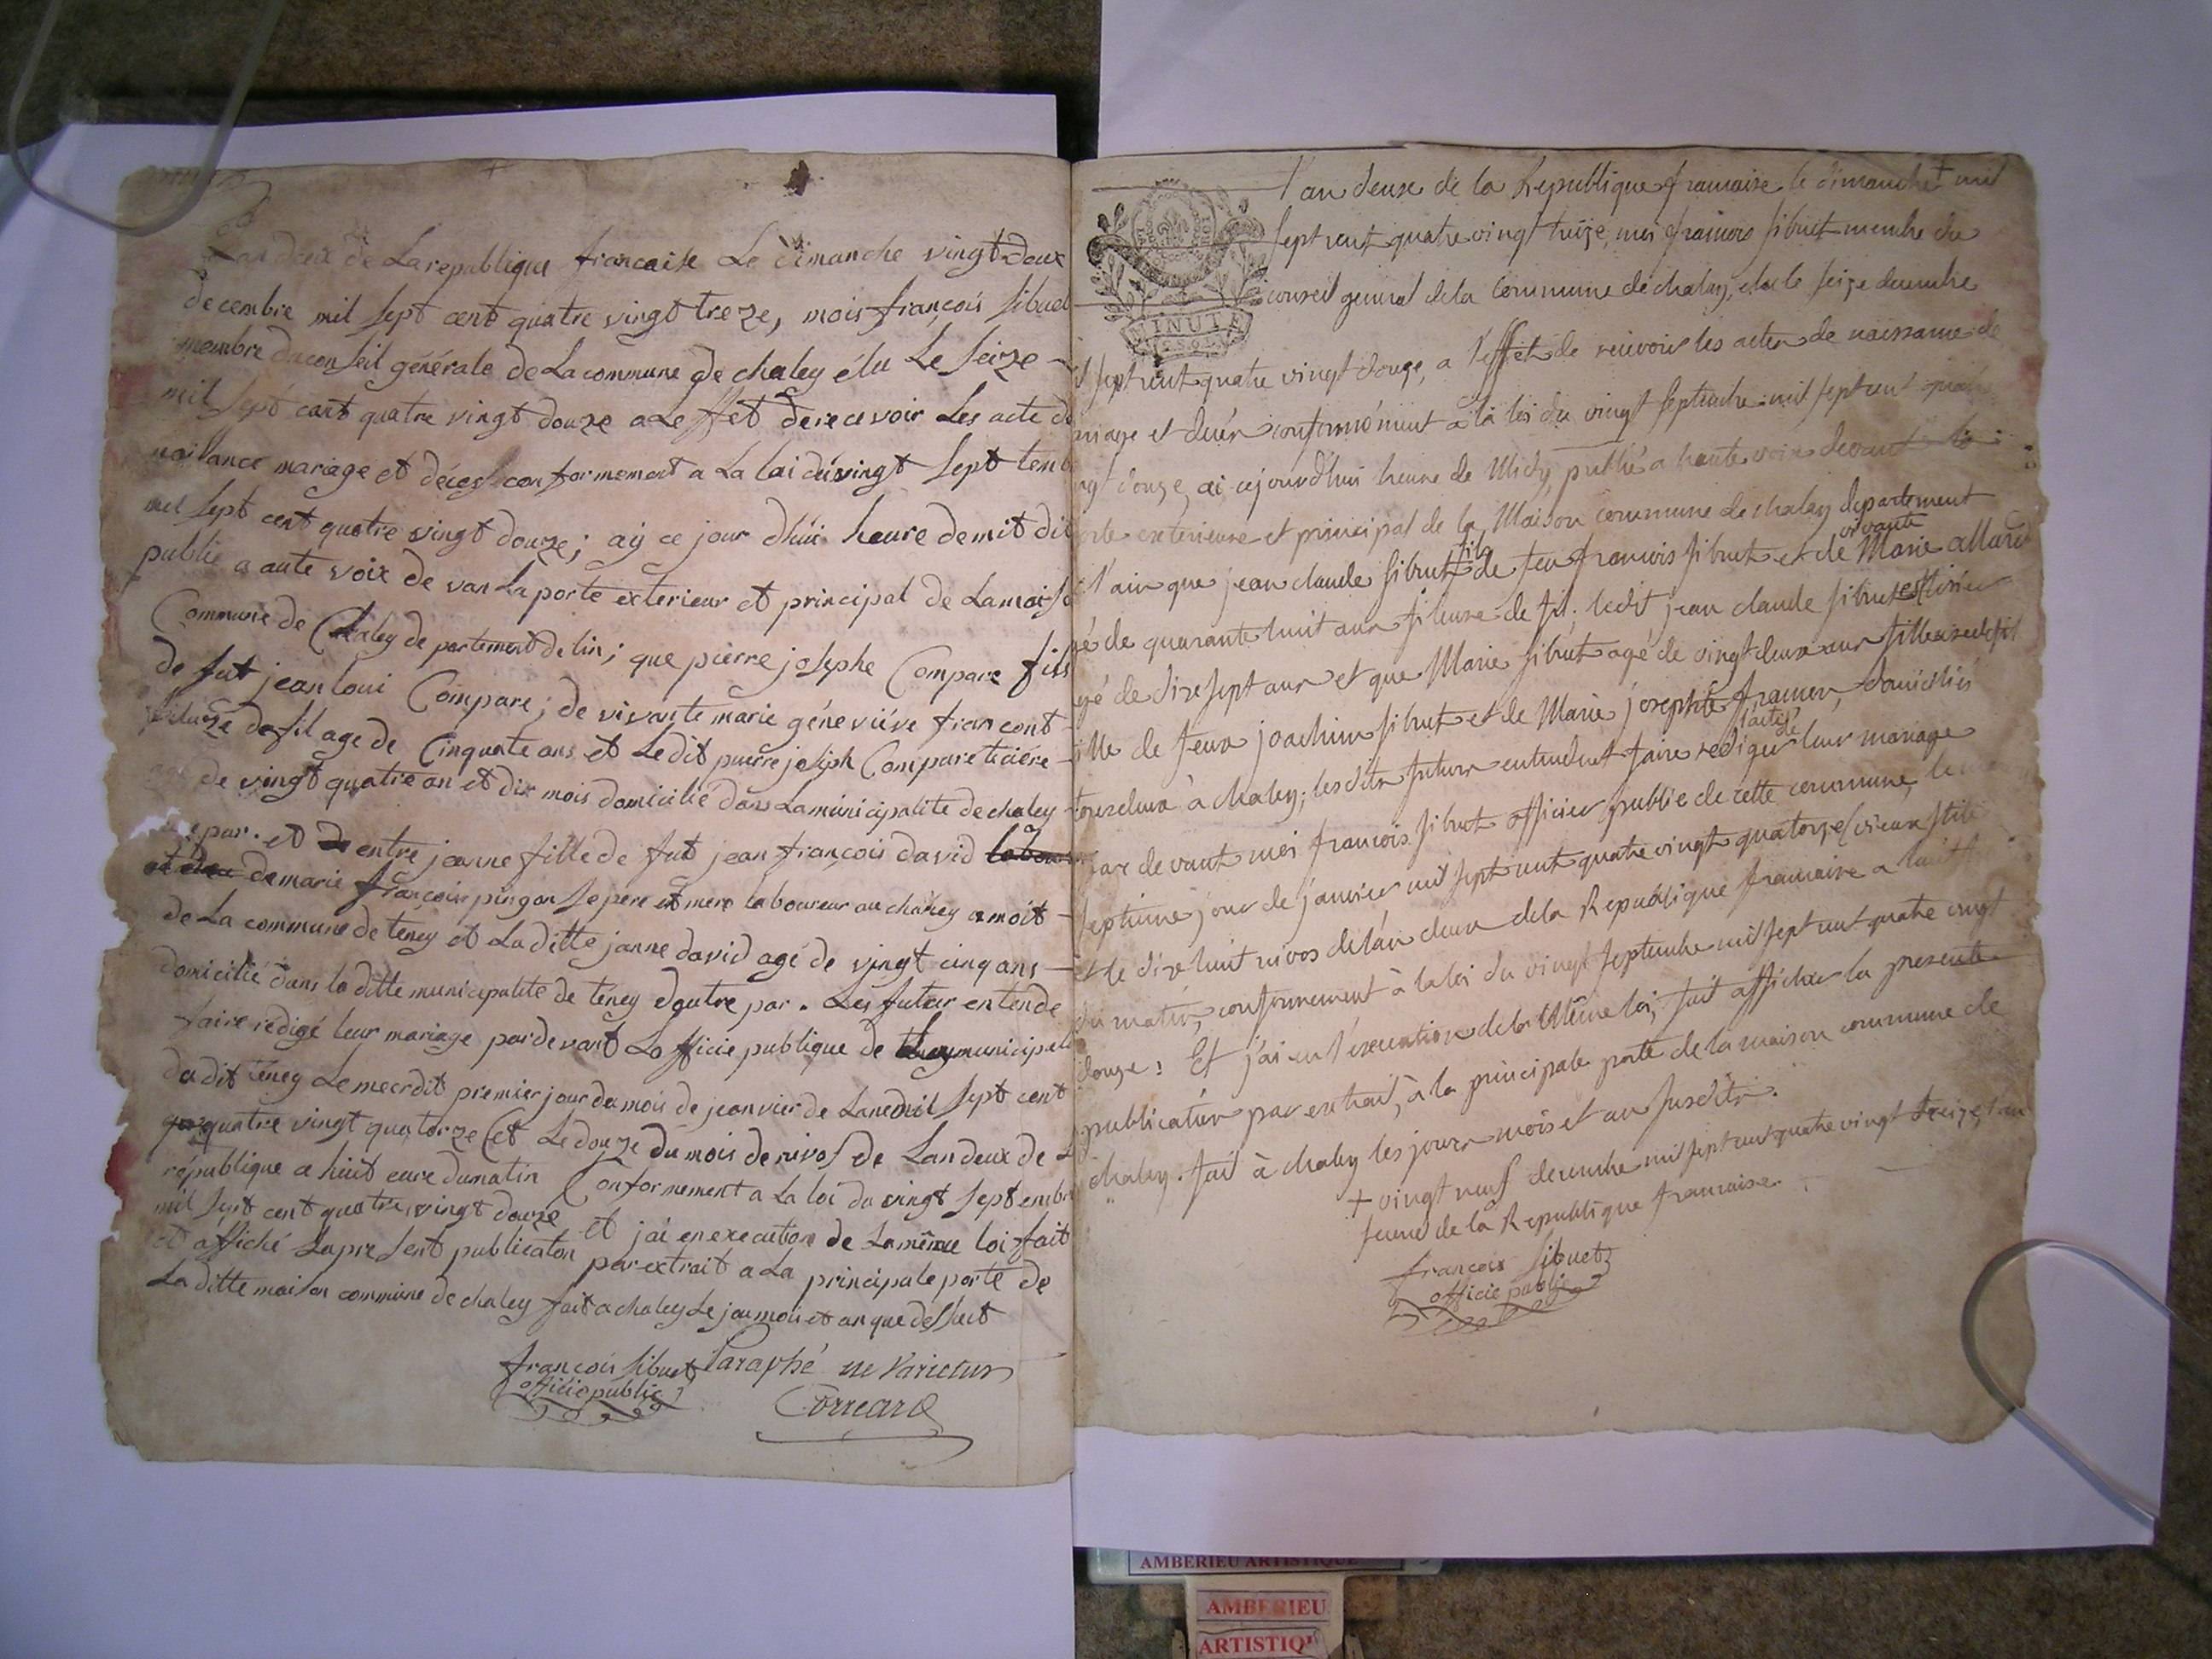 Lan deux de La republique francaise Le dimanche vingt deux
decembre mil sept cent quatre vingt treze, mois françois sibuet
membre du conseil générale de La commune de chaley élu Le seize
mil sept cent quatre vingt douze a Leffet de recevoir Les acte de
naisance mariage et déces conformement a La loi du vingt septemb
mil sept cent quatre vingt douze; ay ce jour dhui heure demit dit
publie a aute voix de van La porte exterieur et principal de La maiso
Commune de Chaley de partement de lin; que pierre josephe Compare fils
de fut jean loui Compare; de vivante marie géneviéve francont
fileuze de fil age de Cinquate ans et Le dit pierre joseph Compare ticiére
de vingt quatre an et dix mois domicilié dans La municipalite de chaley
par. et entre jeanne fille de fut jean françois david
de marie françoise pingon se pere et mere laboureur au chaney amoit
de La commune de teney et La ditte janne david agé de vingt cinq ans
domicilié dans la ditte municipalite de téney doutre par. Les futeur entende
faire rédigé leur mariage par devant Lofficie publique de municipal
du dit téney Le mecrdit premier jour du mois de jeanvier de Lane mil sept cent
quatre vingt quatorze (et Le douze du mois de nivos de Landeux de L
république a huit eure du matin Conformement a La loi du vingt septembr
mil sept cent quatre vingt douze et jai en execution de La même loi fait
et affiché La present publicaton par extrait a La principale porte de
La ditte maison commune de chaley fait a chaley Le jour mois et an que dessut
françois sibuet Paraphé ne Varietur
officie public
Correard
l'an deuxe de la Republique francaise le dimanche + mil
sept cent quatre vingt treize, moi francois sibuet membre du
conseil general de la commune de chaley, elu le seize decembre
MINUTE
sept cent quatre vingt douze, a l'effet de recevoir les actes de naissance de
riage et decés conformément a la loi du vingt septembre mil sept cent quatre
ngt douze, ai cejourd'hui heure de Midy, publié a haute voix devant la
orte exterieure et principal de la Maison commune de chaley departement
l'ain que jean claude sibuet fils de feu francois sibuet et de vivante Marie allard
gé de quarante huit ans fileuse de fil; ledit jean claude sibuet
gé de dixe sept ans et que Marie sibuet agé de vingt deux ans fileuse de fil
ille de feux joachim sibuet et de Marie josephte framon, domiciliés
tous deux à chaley; lesdits futurs entendent faire rediger l'acte de leur mariage
par devant moi francois sibuet officier public de cette commune, le
septieme jour de janvier mil sept cent quatre vingt quatorze (vieux stile
et le dixe huit nivos de l'an deux de la Republique francaise a huit
du matin, conformement à la loi du vingt septembre mil sept cent quatre vingt
douze: Et j'ai en l'execution de la Même loi, fait afficher la presente
publication par extrait, à la principale porte de la maison commune de
chaley. fait à chaley les jours mois et an susdits.
+ vingt neuf decembre mil sept cent quatre vingt treize, l'an
de la Republique francaise.
francois sibuet
officie public
AMBERIEU ARTISTIQUE
AMBERIEU
ARTISTIQU